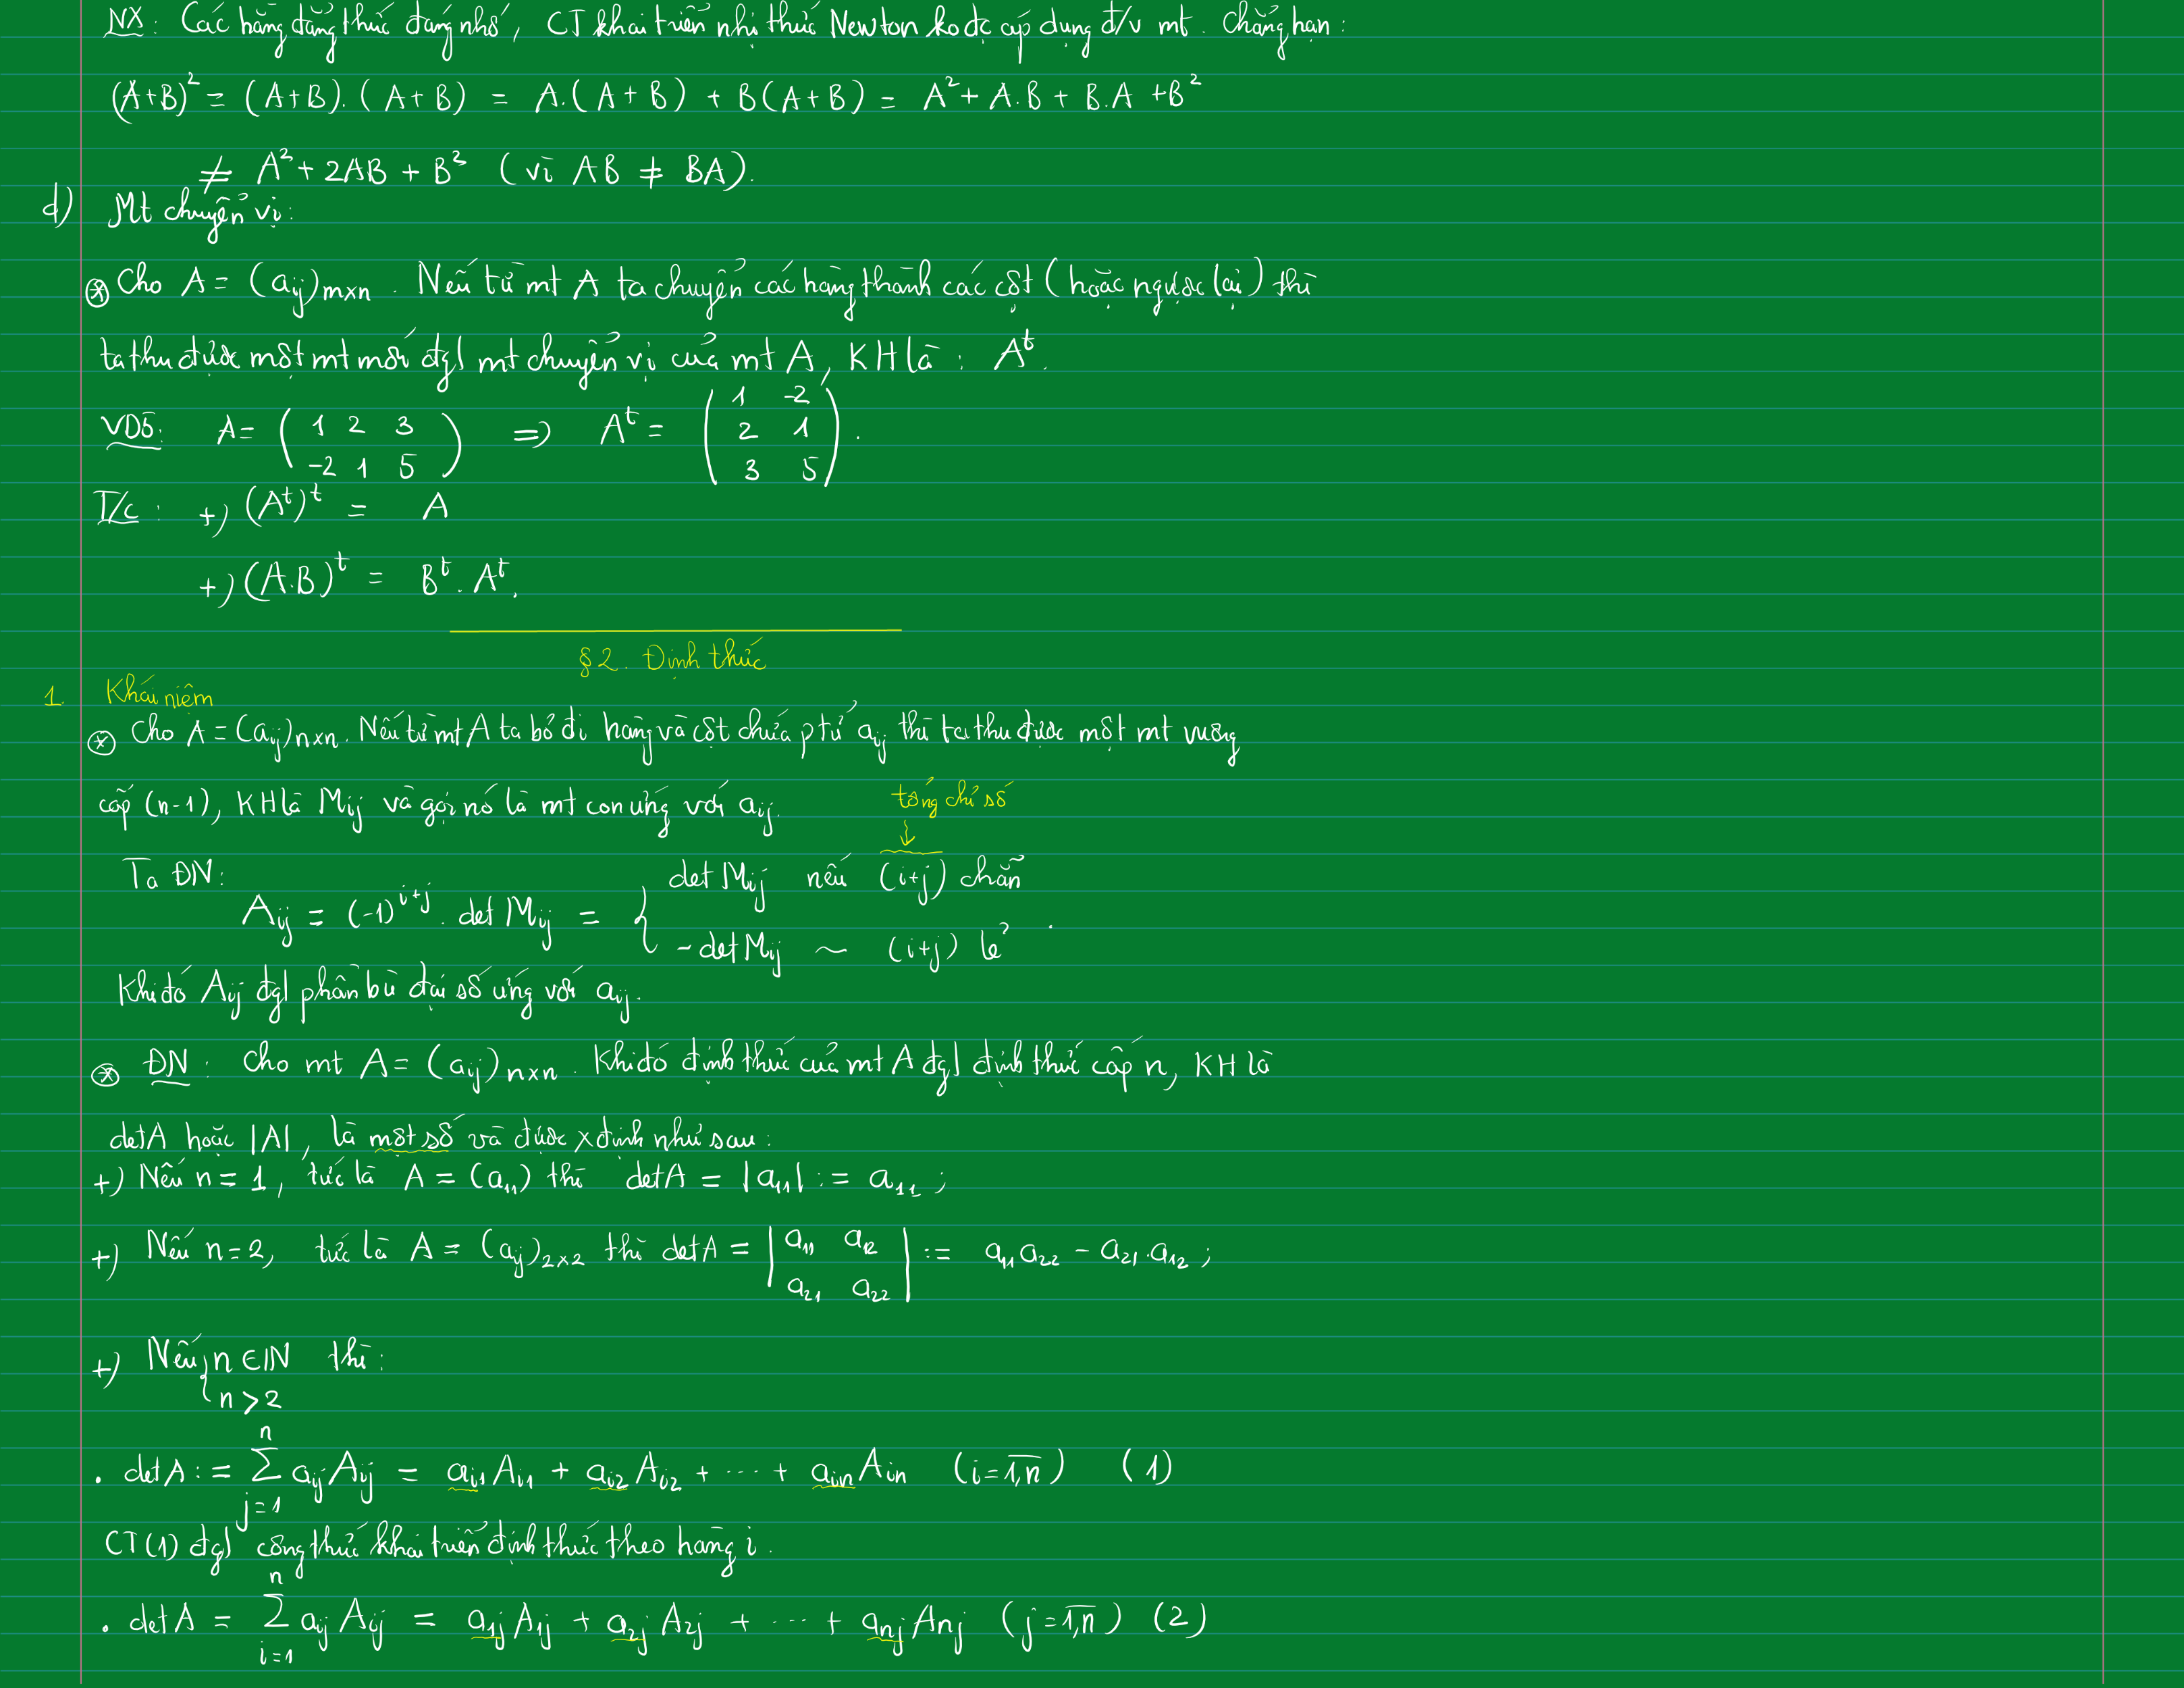 NX: Các hằng đẳng thức đáng nhớ, CT khai triển nhị thức Newton ko đc áp dụng đ/v mt. Chẳng hạn:
(A+B)² = (A+B).(A+B) = A.(A+B) + B(A+B) = A² + A.B + B.A + B²
≠ A² + 2AB + B² (vì AB ≠ BA).
d) Mt chuyển vị:
⊛ Cho A = (aᵢⱼ)ₘₓₙ. Nếu từ mt A ta chuyển các hàng thành các cột (hoặc ngược lại) thì
ta thu được một mt mới đgl mt chuyển vị của mt A, KH là: Aᵗ.
VD5: A = ( 1 2 3 ; -2 1 5 ) => Aᵗ = ( 1 -2 ; 2 1 ; 3 5 ).
T/c: +) (Aᵗ)ᵗ = A
+) (A.B)ᵗ = Bᵗ.Aᵗ.
§2. Định thức
1. Khái niệm
⊛ Cho A = (aᵢⱼ)ₙₓₙ. Nếu từ mt A ta bỏ đi hàng và cột chứa ptử aᵢⱼ thì ta thu được một mt vuông
cấp (n-1), KH là Mᵢⱼ và gọi nó là mt con ứng với aᵢⱼ.
tổng chỉ số
↓
Ta ĐN:
Aᵢⱼ = (-1)ⁱ⁺ʲ. det Mᵢⱼ = { det Mᵢⱼ nếu (i+j) chẵn
-det Mᵢⱼ ~ (i+j) lẻ.
Khi đó Aᵢⱼ đgl phần bù đại số ứng với aᵢⱼ.
⊛ ĐN: Cho mt A = (aᵢⱼ)ₙₓₙ. Khi đó định thức của mt A đgl định thức cấp n, KH là
detA hoặc |A|, là một số và được xđịnh như sau:
+) Nếu n = 1, tức là A = (a₁₁) thì detA = |a₁₁| := a₁₁;
+) Nếu n = 2, tức là A = (aᵢⱼ)₂ₓ₂ thì detA = | a₁₁ a₁₂ ; a₂₁ a₂₂ | := a₁₁a₂₂ - a₂₁.a₁₂;
+) Nếu { n ∈ ℕ thì:
n > 2
. detA := ∑ⁿⱼ₌₁ aᵢⱼAᵢⱼ = aᵢ₁Aᵢ₁ + aᵢ₂Aᵢ₂ + ... + aᵢₙAᵢₙ (i = 1,n) (1)
CT(1) đgl công thức khai triển định thức theo hàng i.
. detA = ∑ⁿᵢ₌₁ aᵢⱼAᵢⱼ = a₁ⱼA₁ⱼ + a₂ⱼA₂ⱼ + ... + aₙⱼAₙⱼ (j = 1,n) (2)